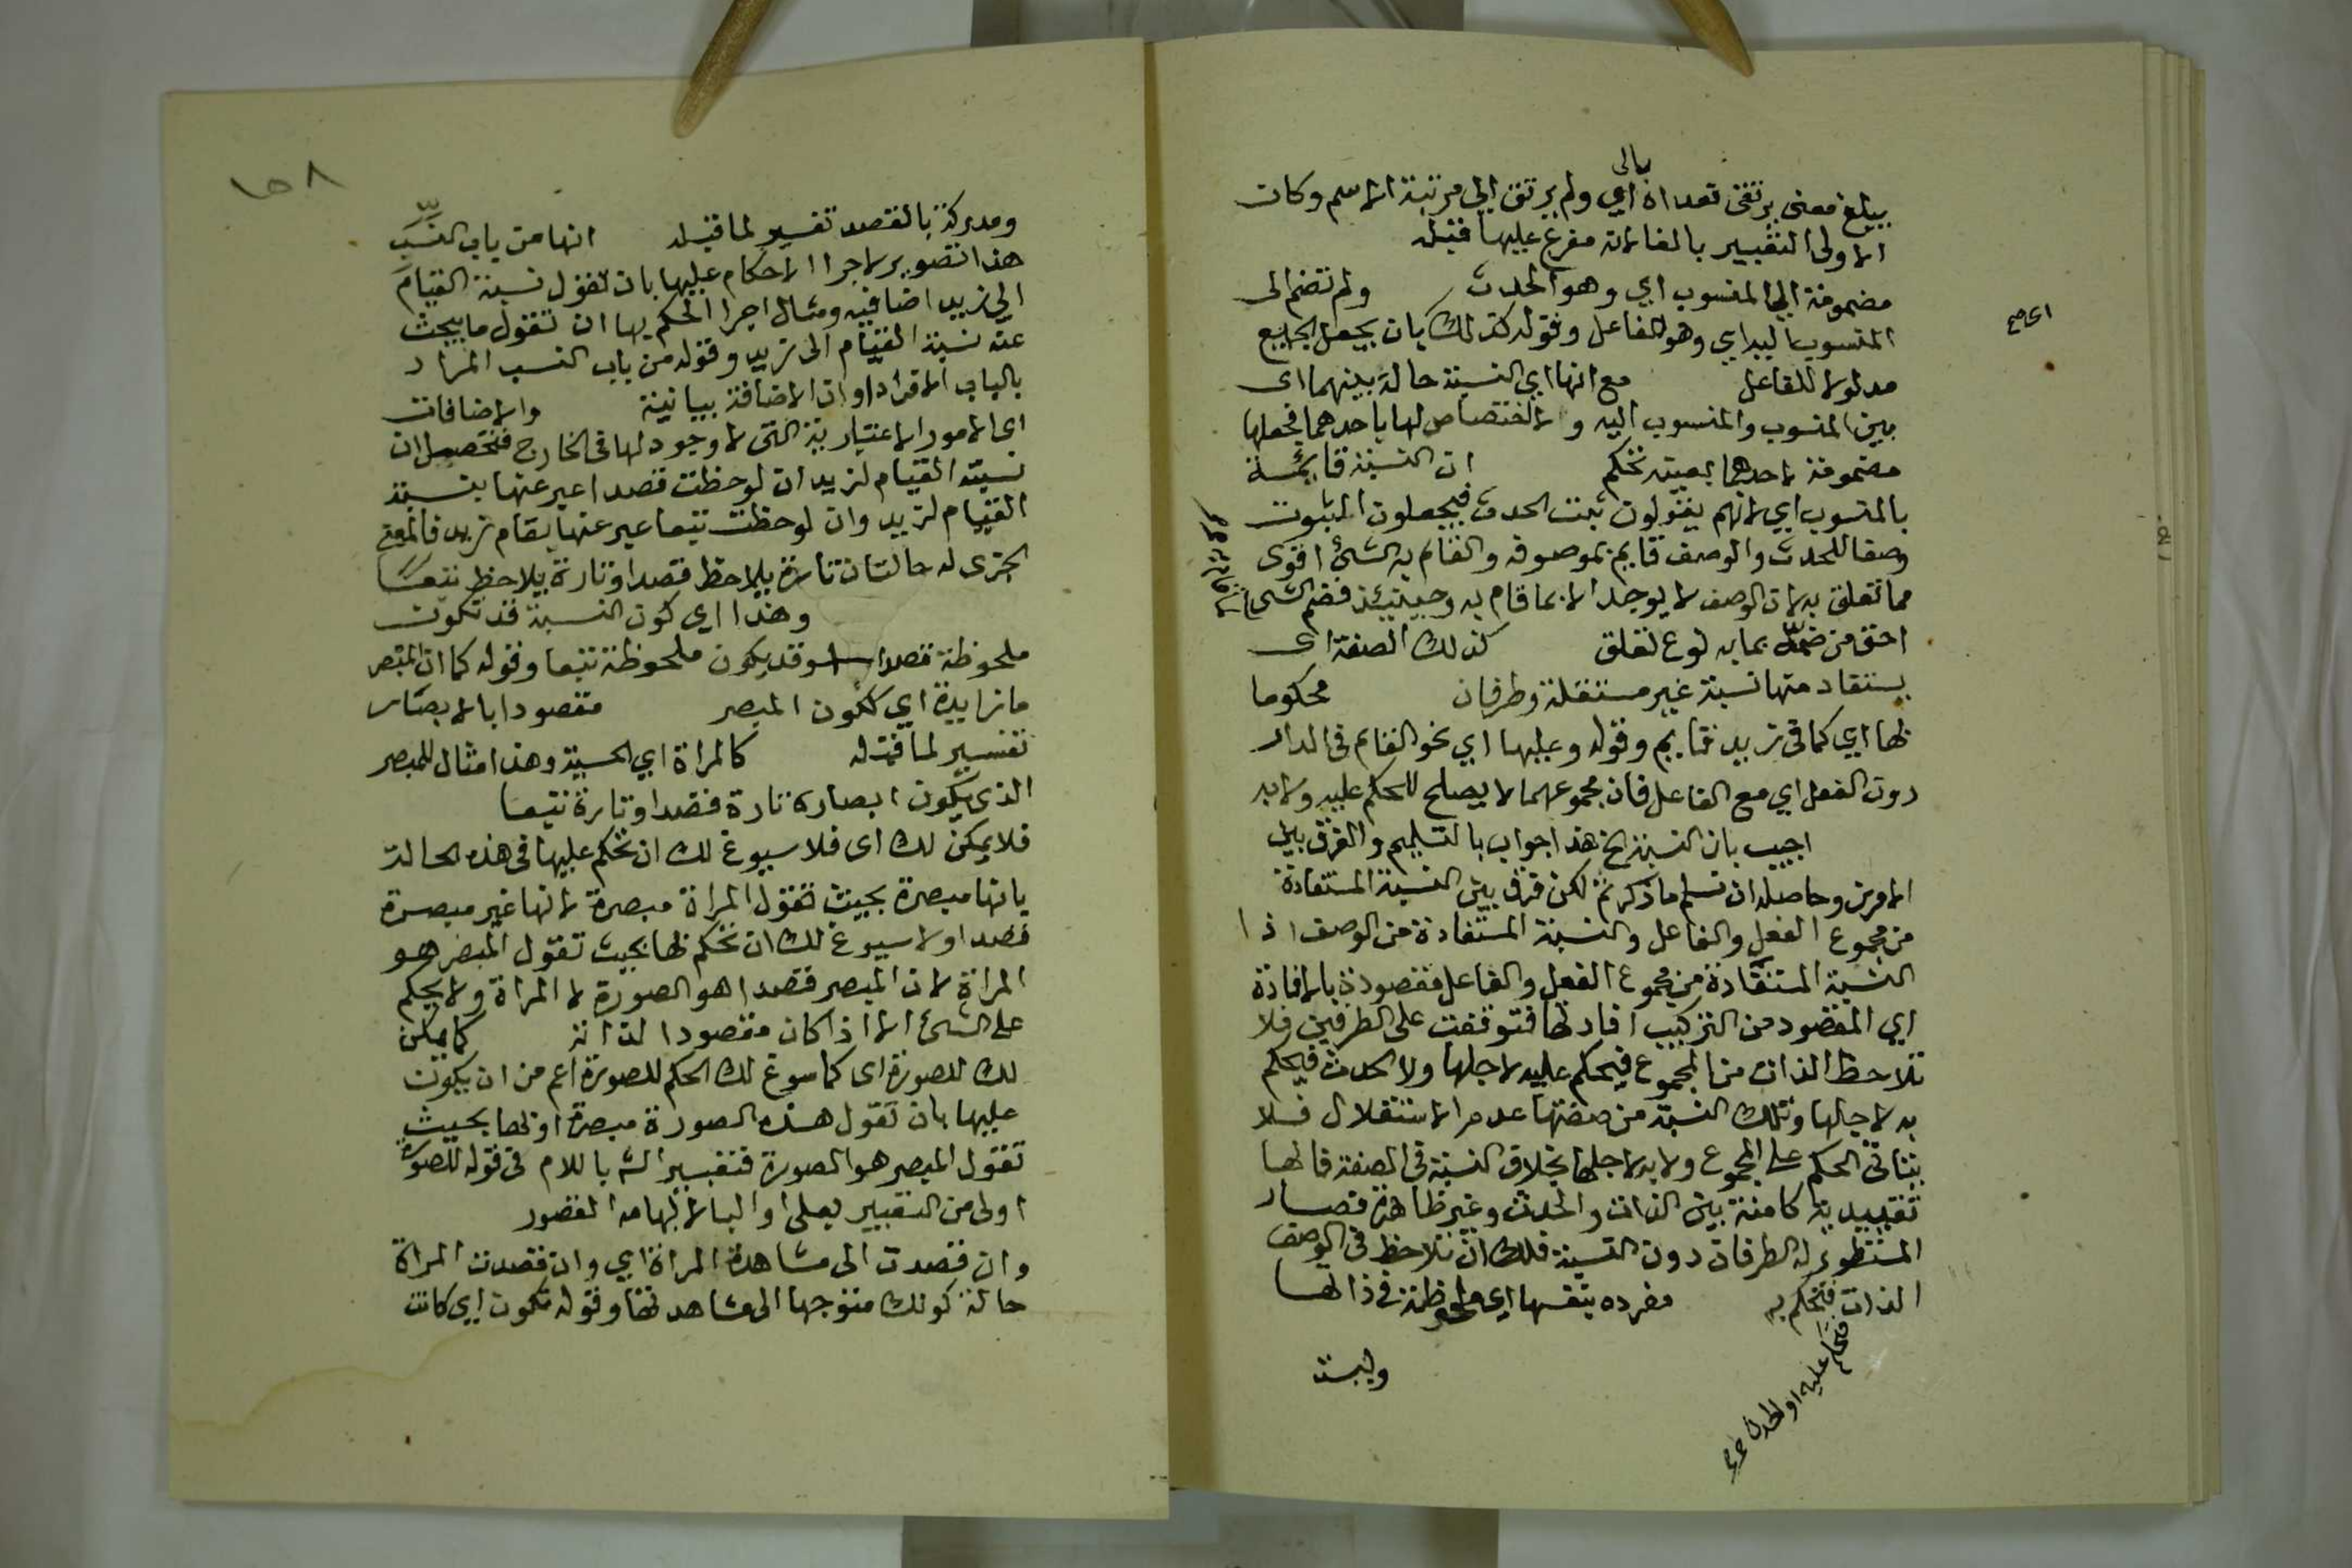 بالى
يبلغ معنى يرتقى تعداه اي ولم يرتق الي مرتبة الاسم وكان
الاولى التعبير بالفا لانه مفرع عليها قبله
مضمومة الي المنسوب اي وهو الحدث ولم تضم الى
المنسوب اليه اي وهو الفاعل وقوله كذلك بان يجعل الجميع
مدلولا للفاعل مع انها اي النسبة حالة بينهما اى
بين المنسوب والمنسوب اليه ولا اختصاص لها باحدهما فجعلها
مضمومة لاحدهما بعينه تحكم ان النسبة قائمة
بالمنسوب اي لانهم يقولون ثبت الحدث فيجعلون الثبوت
وصفا للحدث والوصف قايم بموصوفه والقام به الشئ اقوى
مما تعلق به لان الوصف لا يوجد الا بما قام به وحينئذ فضم الشى
احق من ضمه بما به نوع تعلق كذلك الصفة اى
يستفاد منها نسبة غير مستقلة وطرفان محكوما
بها اي كما في زيد قايم وقوله وعليها اي نحو القام في الدار
دون الفعل اي مع الفاعل فان مجموعهما لا يصلح للحكم عليه ولا به
اجيب بان النسبة الخ هذا جواب بالتسليم والفرق بين
الامرين وحاصله ان نسلم ما ذكرتم لكن فرق بين النسبة المستفادة
من مجموع الفعل والفاعل والنسبة المستفادة من الوصف اذا
النسبة المستفادة من مجموع الفعل والفاعل مقصودة بالافادة
اي المقصود من التركيب افادتها فتوقفت على الطرفين فلا
تلاحظ الذات من المجموع فيحكم عليه لاجلها ولا الحدث فيحكم
به لاجلها وتلك النسبة من صفتها عدم الاستقلال فلا
يتاتى الحكم على المجموع ولا به لاجلها بخلاف النسبة في الصفة فانها
تقييدية كامنة بين الذات والحدث وغير ظاهرة فصار
المنظور له الطرفان دون النسبة فلك ان تلاحظ في الوصف
الذات فتحكم به مفرده بنفسها اي ملحوظة في ذاتها
فتحكم عليه او الحدث صح
وليست
اى صح
١٥٨
ومدركة بالقصد تفسير لما قبله انها من باب النسب
هذا تصوير لاجرا الاحكام عليها بان تقول نسبة القيام
الي زيد اضافيه ومثال اجرا الحكم بها ان تقول ما يبحث
عنه نسبة القيام الى زيد وقوله من باب النسب المراد
بالباب الافراد او ان الاضافة بيانية والاضافات
اى الامور الاعتبارية التى لا وجود لها في الخارج فتحصل ان
نسبة القيام لزيد ان لوحظت قصدا عبر عنها بنسبة
القيام لزيد وان لوحظت تبعا عبر عنها بقام زيد فالمعنى
الجزى له حالتان تارة يلاحظ قصدا وتارة يلاحظ تبعا
وهذا اي كون النسبة قد تكون
ملحوظة قصدا وقد يكون ملحوظة تبعا وقوله كما ان المبصر
ما زايدة اي ككون المبصر مقصودا بالابصار
تفسير لما قبله كالمراة اي الحسية وهذا مثال للمبصر
الذي يكون ابصاره تارة قصدا وتارة تبعا
فلا يمكن لك اى فلا سيوغ لك ان تحكم عليها في هذه الحالة
بانها مبصرة بحيث تقول المراة مبصرة لانها غير مبصرة
قصدا ولا سيوغ لك ان تحكم بها بحيث تقول المبصر هو
المراة لان المبصر قصدا هو الصورة لا المراة ولا يحكم
على الشئ الا اذا كان مقصودا لذاته كما يمكن
لك للصورة اى كما سوغ لك الحكم للصورة اعم من ان يكون
عليها بان تقول هذه الصورة مبصرة او بها بحيث
تقول المبصر هو الصورة فتعبير الش باللام في قوله للصورة
اولى من التعبير بعلى او البا لايهامه القصور
وان قصدت الى مشاهدة المراة اي وان قصدت المراة
حالة كونك متوجها الى مشاهدتها وقوله تكون اي كانت